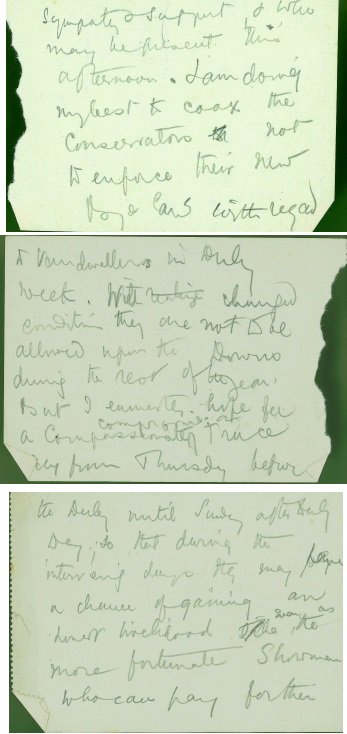 Sympathy & Support, & who
may be present this
afternoon. I am doing
my best to coax the
Conservators to not
to enforce their new
Bye Laws with regard
to Vandwellers in Derby
week. With changed
condition they are not to be
allowed upon the Downs
during the rest of the year.
But I earnestly hope for
compromise or
a Compassionate Truce
say from Thursday before
the Derby until Sunday after Derby
Day, so that during the
intervening days they may
a chance of gaining an
honest livelihood the same as
more fortunate Showmen
who can pay for their